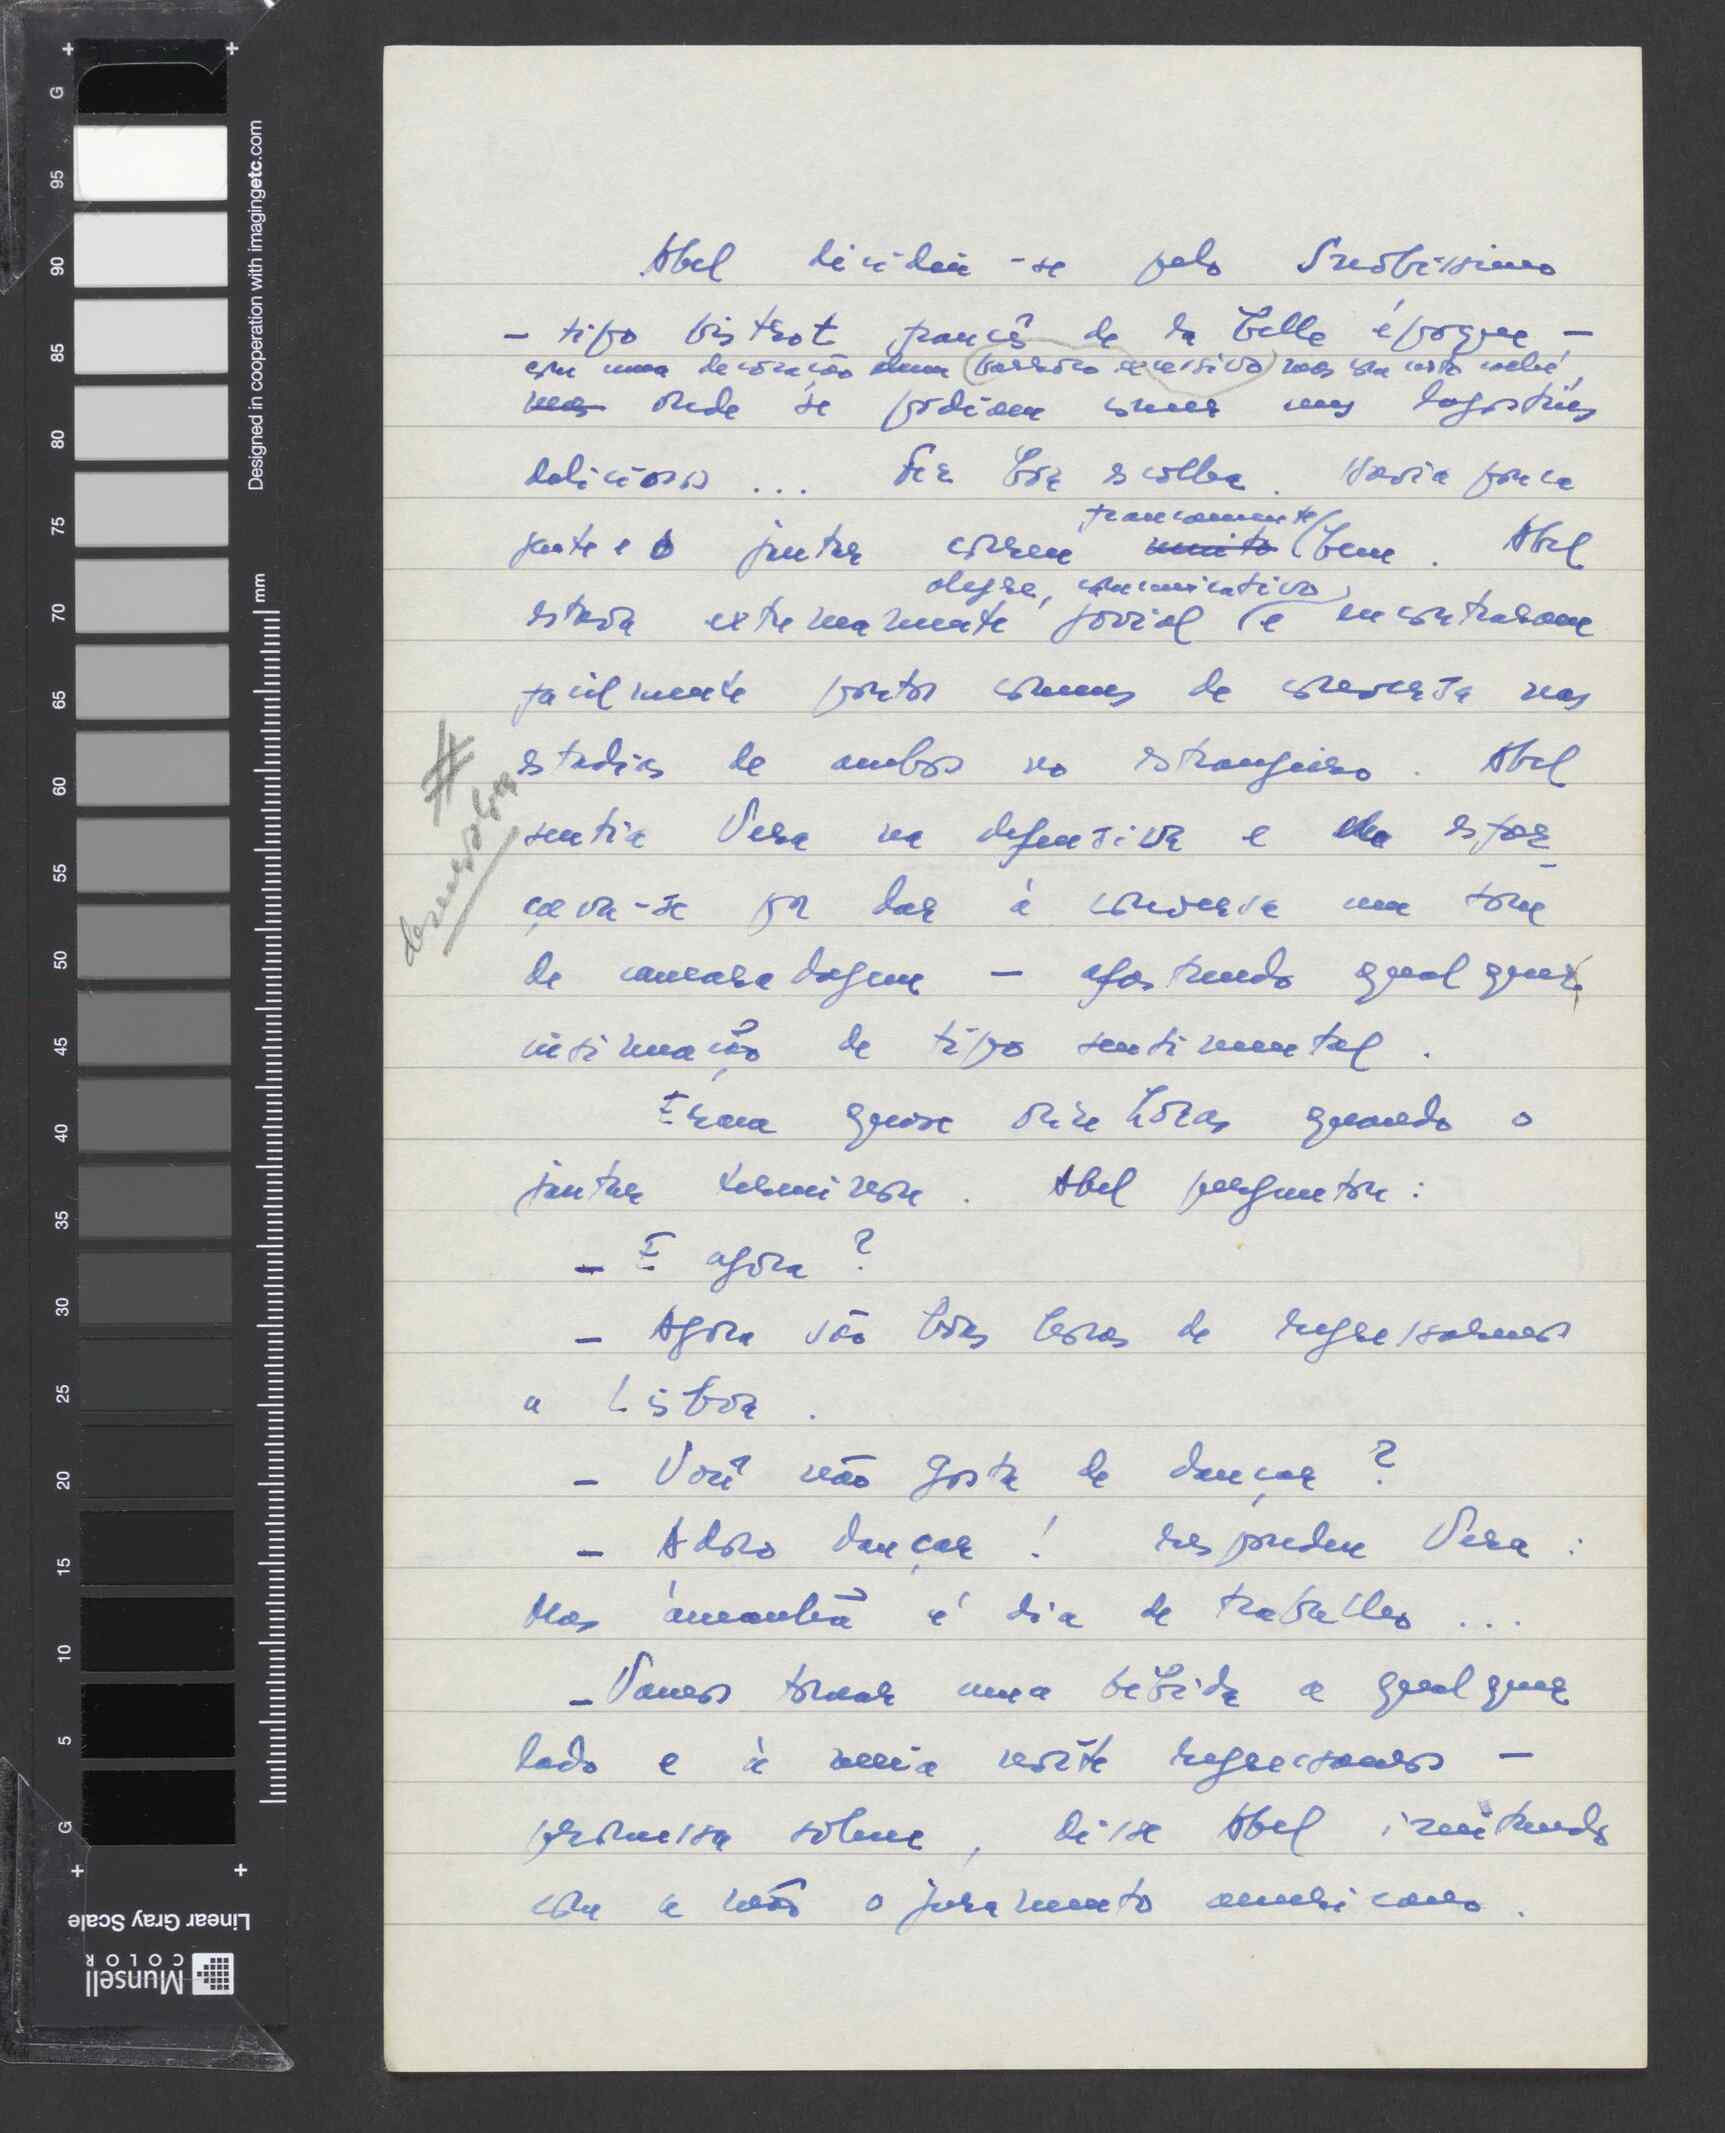 Abel decidiu-se pelo Snobíssimo
– tipo bistrot francês de la belle époque –
com uma decoração duma (barroco excessivo) mas com certo cachê,
mas onde se podiam comer uns lagostins
deliciosos ... Foi boa escolha. Havia pouca
francamente
gente e o jantar correu muito (bem. Abel
alegre, comunicativo
estava extremamente jovial (e encontraram
facilmente pontos comuns de conversa nas
estadias de ambos no estrangeiro. Abel
#
desenvolver
sentia Vera na defensiva e esfor
çava-se por dar à conversa um tom
de camaradagem – afastando qualquer
insinuação de tipo sentimental.
Eram quase onze horas quando o
jantar terminou. Abel perguntou:
– E agora?
– Agora são boas horas de regressarmos
a Lisboa.
– Você não gosta de dançar?
– Adoro dançar! respondeu Vera:
Mas àmanhã é dia de trabalho ...
– Vamos tomar uma bebida a qualquer
lado e à meia noite regressamos –
promessa solene, disse Abel imitando
com a mão o juramento americano.
Designed in cooperation with imagingetc.com
mm
G
95
90
85
80
75
70
65
60
55
50
45
40
35
30
25
20
15
10
5
G
Linear Gray Scale
Munsell
COLOR